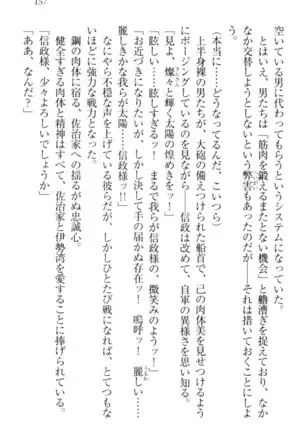 157
空いている男に代わってもらうというシステムにしておくと、なか
なか交替しようとしないという弊害もあったのだが――それは措いておくことにしよ
う。
とはいえ、男たちは「筋肉を鍛えるまたとない機会」と艪漕ぎを捉えており、なか
(本当に……どうなってるんだ、こいつら)
上半身裸の男たちが、大砲の備えつけられた船首で、己の肉体美を見せつけるよう
にポージングしているのを見ながら――信政は改めて、自軍の異様さを思い知る。
「見よ、燦々と輝く太陽の煌めきをッ!」
「眩しい……眩しいッ! まるで我らが信政様の、微笑みのようッ!」
「お近づきになりたいが、しかし決して手の届かぬ存在ッ! 嗚呼ッ! 麗しい……
麗しきかな我らが太陽……信政様ッ!!」
なにやら不穏な声を上げている彼らだが、しかしひとたび戦になると、とてつもな
いほどに強力な戦力となった。
鋼の肉体に宿る、佐治家への揺るがぬ忠誠心。
健全すぎる肉体と精神はすべて、佐治家と伊勢湾を愛することに捧げられている。
「信政様、少々よろしいでしょうか」
「ああ、なんだ?」